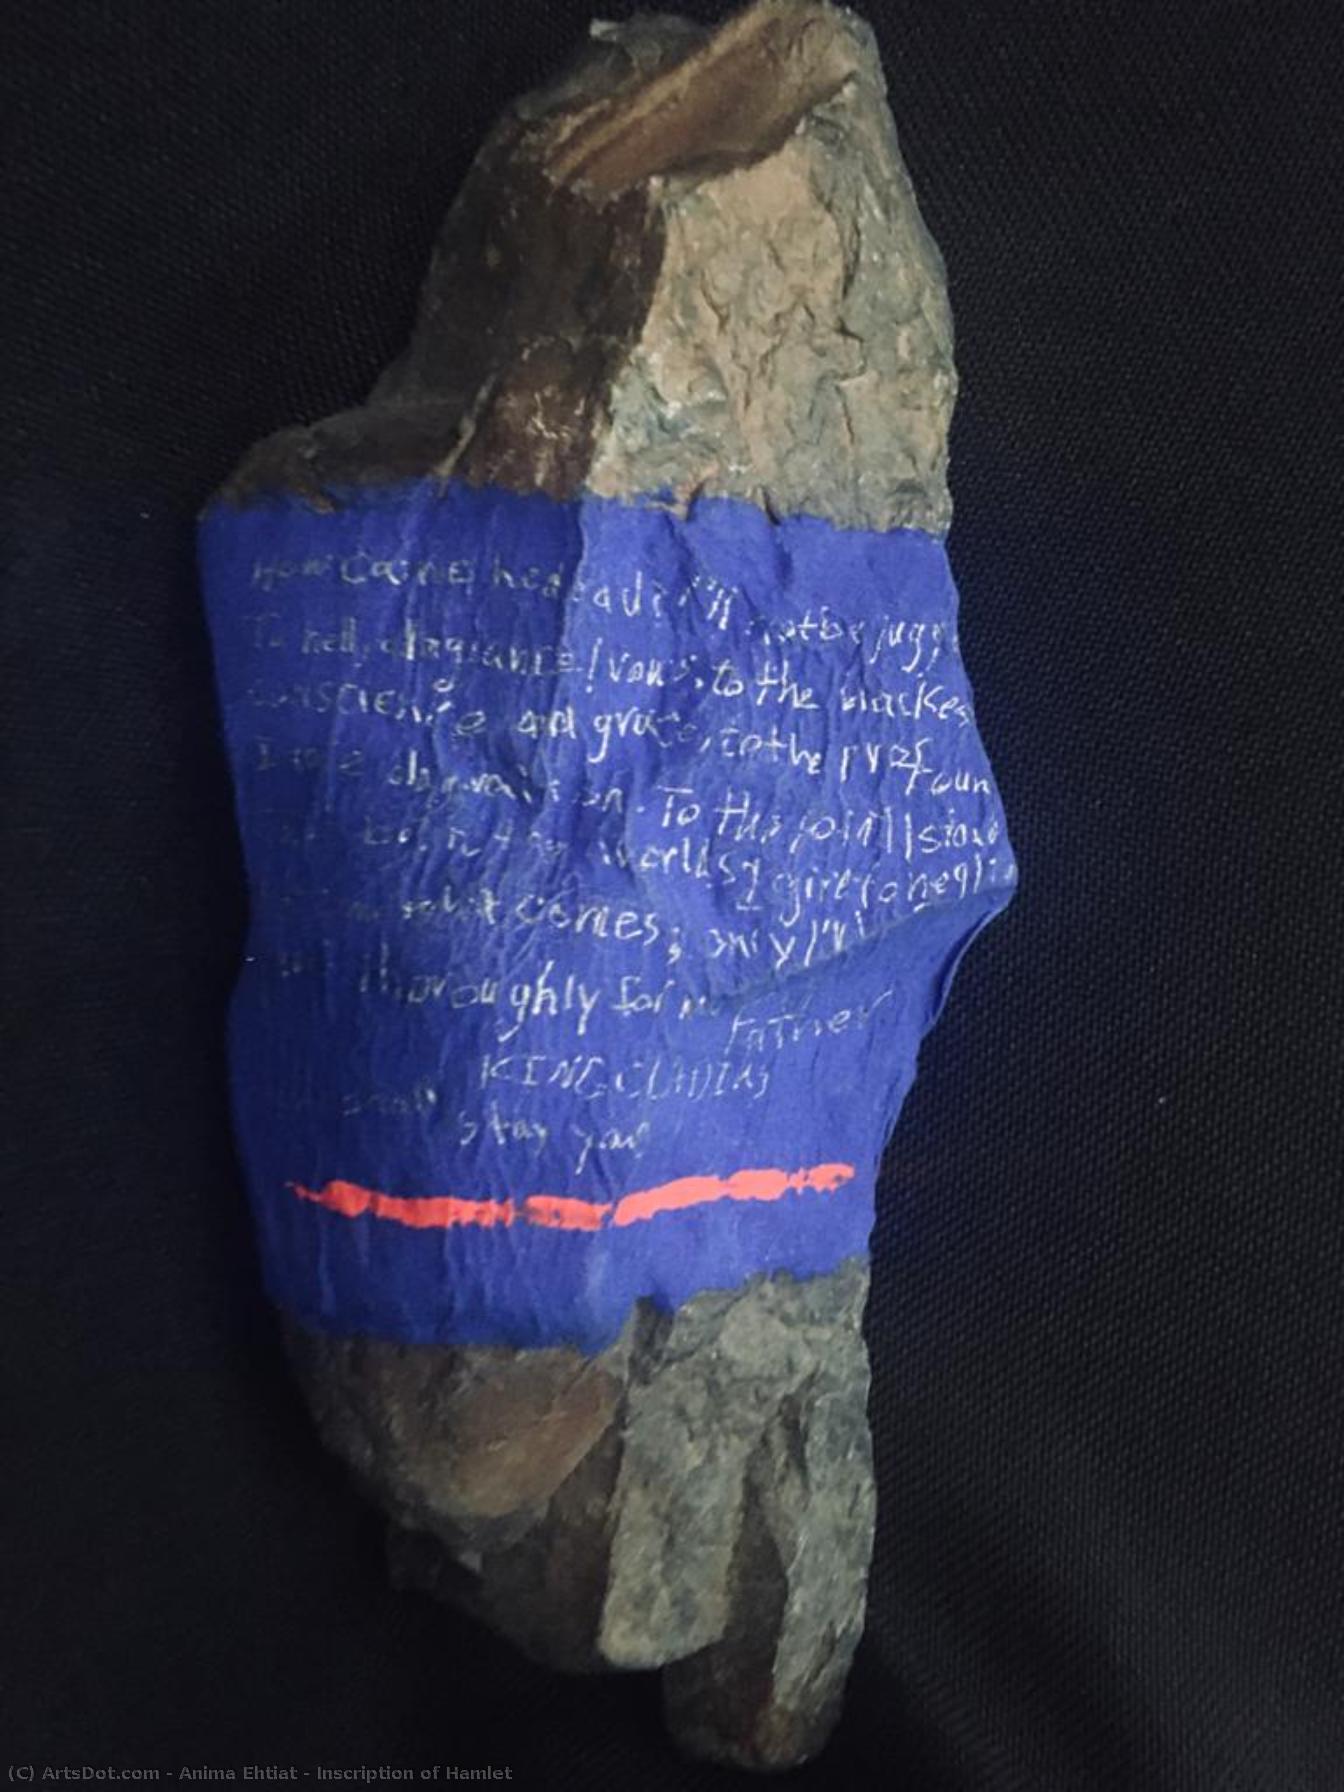 How came he dead? I'll not be jugg
To hell, allegiance! vows, to the blackes
conscience and grace, to the profoun
I dare damnation. To this point I stand
both the worlds I give to negli
what comes; only I'll
thoroughly for my Father
KING CLAUDIUS
shall stay you
(C) ArtsDot.com - Anima Ehtiat - Inscription of Hamlet